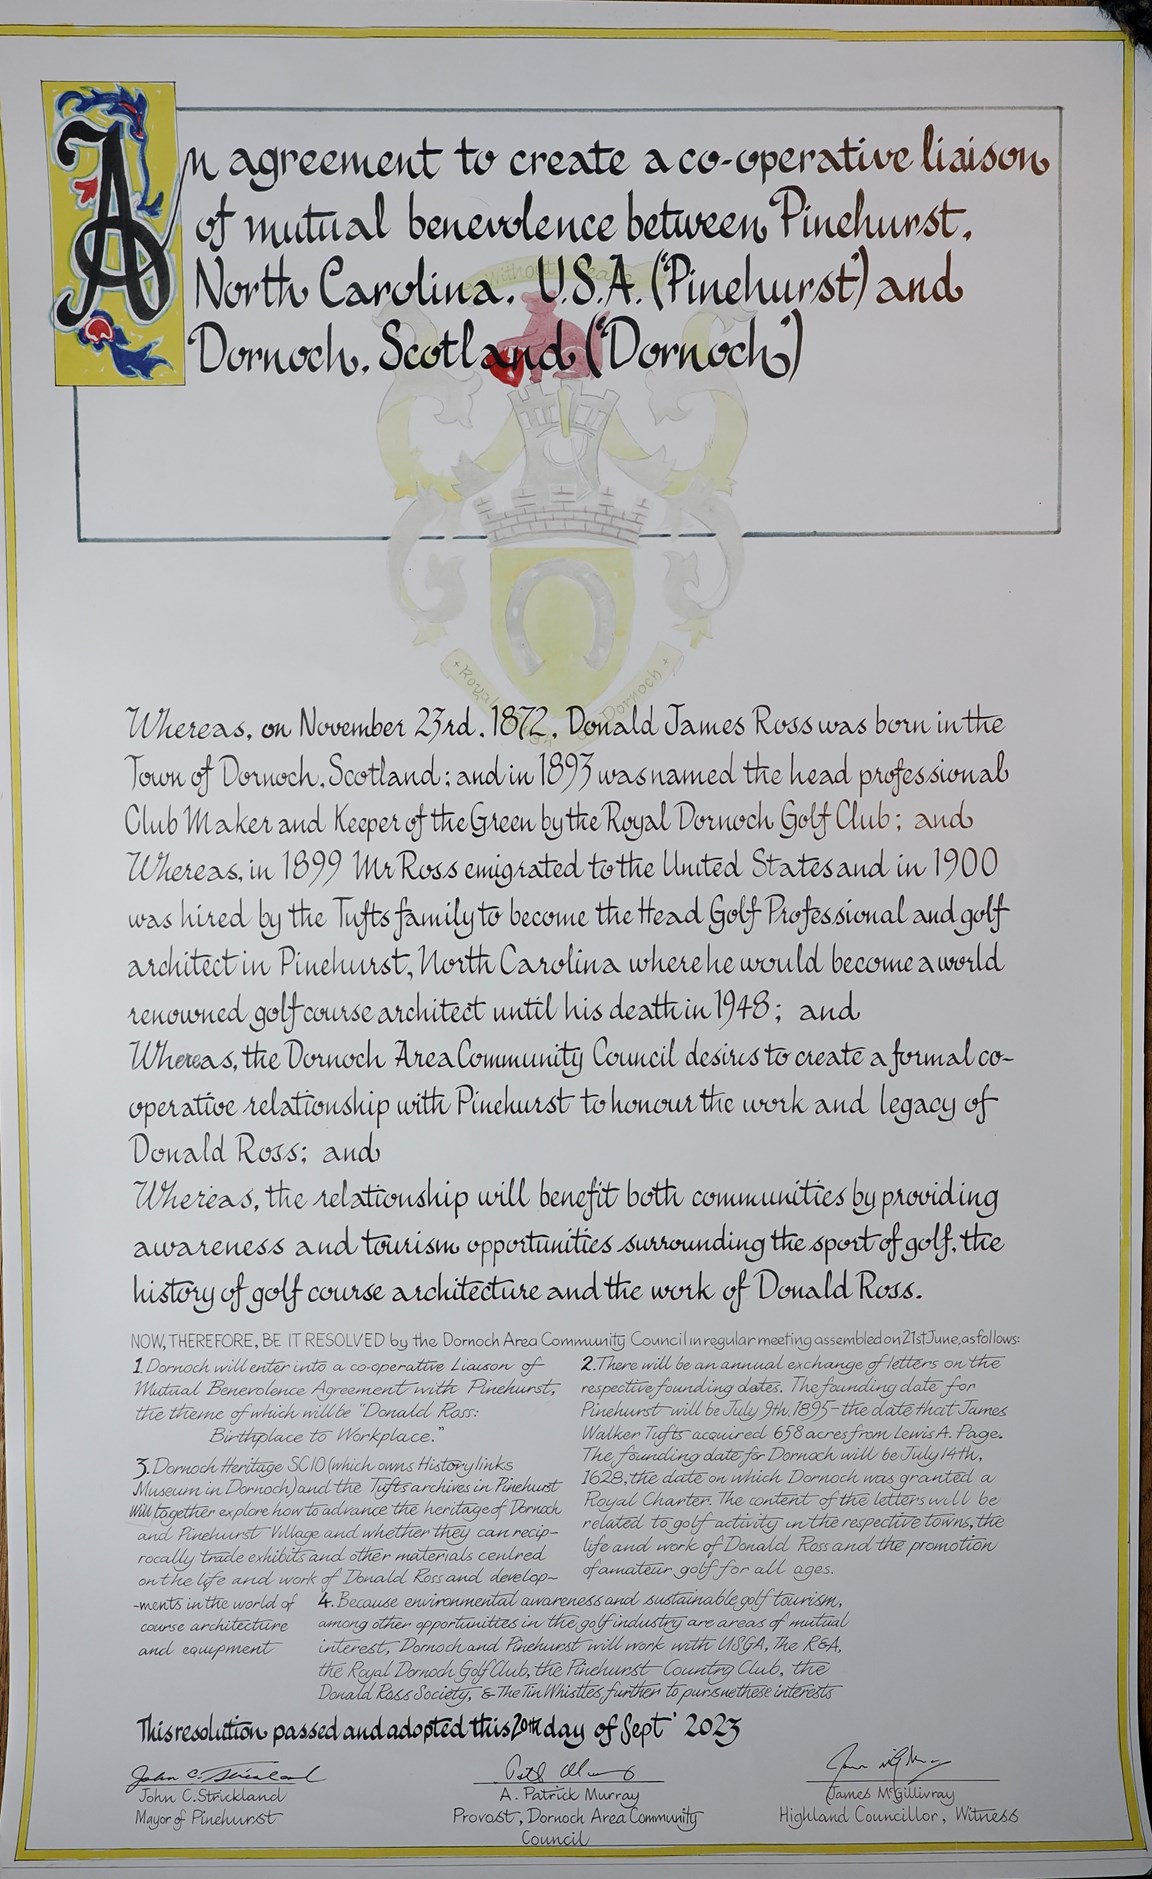 An agreement to create a co-operative liaison
of mutual benevolence between Pinehurst,
North Carolina, U.S.A. ('Pinehurst') and
Dornoch, Scotland ('Dornoch')
Without
Royal
Dornoch
Whereas, on November 23rd, 1872, Donald James Ross was born in the
Town of Dornoch, Scotland; and in 1893 was named the head professional
Club Maker and Keeper of the Green by the Royal Dornoch Golf Club; and
Whereas, in 1899 Mr Ross emigrated to the United States and in 1900
was hired by the Tufts family to become the Head Golf Professional and golf
architect in Pinehurst, North Carolina where he would become a world
renowned golf course architect until his death in 1948; and
Whereas, the Dornoch Area Community Council desires to create a formal co-
operative relationship with Pinehurst to honour the work and legacy of
Donald Ross; and
Whereas, the relationship will benefit both communities by providing
awareness and tourism opportunities surrounding the sport of golf, the
history of golf course architecture and the work of Donald Ross.
NOW, THEREFORE, BE IT RESOLVED by the Dornoch Area Community Council in regular meeting assembled on 21st June, as follows:
1. Dornoch will enter into a co-operative Liaison of
Mutual Benevolence Agreement with Pinehurst,
the theme of which will be "Donald Ross:
Birthplace to Workplace."
2. There will be an annual exchange of letters on the
respective founding dates. The founding date for
Pinehurst will be July 9th, 1895-the date that James
Walker Tufts acquired 658 acres from Lewis A. Page.
The founding date for Dornoch will be July 14th,
1628, the date on which Dornoch was granted a
Royal Charter. The content of the letters will be
related to golf activity in the respective towns, the
life and work of Donald Ross and the promotion
of amateur golf for all ages.
3. Dornoch Heritage SCIO (which owns Historylinks
Museum in Dornoch) and the Tufts archives in Pinehurst
will together explore how to advance the heritage of Dornoch
and Pinehurst Village and whether they can recip-
rocally trade exhibits and other materials centred
on the life and work of Donald Ross and develop-
-ments in the world of
course architecture
and equipment
4. Because environmental awareness and sustainable golf tourism,
among other opportunities in the golf industry are areas of mutual
interest, Dornoch and Pinehurst will work with USGA, The R&A,
the Royal Dornoch Golf Club, the Pinehurst Country Club, the
Donald Ross Society, & The Tin Whistles, further to pursue these interests
This resolution passed and adopted this 20th day of Sept' 2023
John C. Strickland
John C. Strickland
Mayor of Pinehurst
A. Patrick Murray
Provost, Dornoch Area Community
Council
James McGillivray
Highland Councillor, Witness